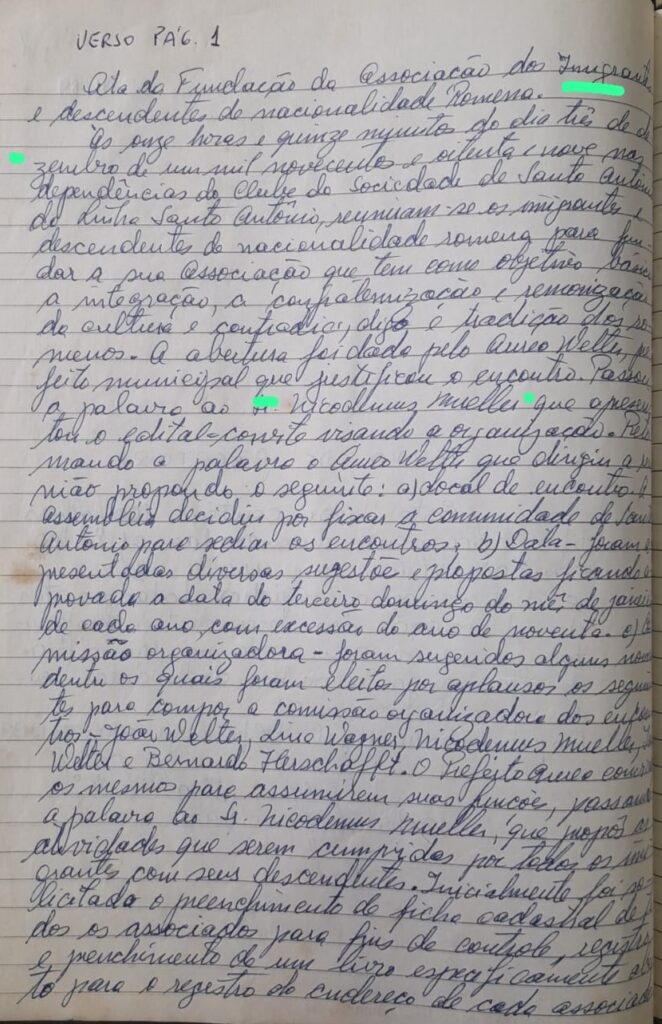 VERSO PÁG. 1
Ata da Fundação da Associação dos Imigrantes
e descendentes de nacionalidade Romena.
Às onze horas e quinze minutos do dia três de de
zembro de um mil novecentos e oitenta e nove nas
dependências do Clube da Sociedade de Santo Antônio
da Linha Santo Antônio, reuniram-se os imigrantes e
descendentes de nacionalidade romena para fun
dar a sua Associação que tem como objetivo básico
a integração, a confraternização e
da cultura e contradia, digo, e tradição dos ro
menos. A abertura foi dada pelo Aureo Welter, pre
feito municipal que justificou o encontro. Passou
a palavra ao Sr. Nicodemus Mueller que apresen
tou o edital-convite visando a organização. Reto
mando a palavra o Aureo Welter que dirigiu a reu
nião propondo o seguinte: a) Local de encontro. A
assembléia decidiu por fixar a comunidade de Santo
Antonio para sediar os encontros; b) Data - foram a
presentadas diversas sugestões e propostas ficando a
provada a data do terceiro domingo do mês de janeiro
de cada ano, com excessão do ano de noventa. c) Co
missão organizadora - foram sugeridos alguns nomes
dentre os quais foram eleitos por aplausos os seguin
tes para compôr a comissão organizadora dos encon
tros - João Welter, Lino Wagner, Nicodemus Mueller,
Welter e Bernardo Herschafft. O Prefeito Aureo convidou
os mesmo para assumirem suas funções, passando
a palavra ao Sr. Nicodemus Mueller, que propôs as
atividades que serem cumpridas por todos os imi
grantes com seus descendentes. Inicialmente foi so
licitada o preenchimento de ficha cadastral de to
dos os associados para fins de controle, registro
e prenchimento de um livro especificamente aber
to para o registro do endereço de cada associado